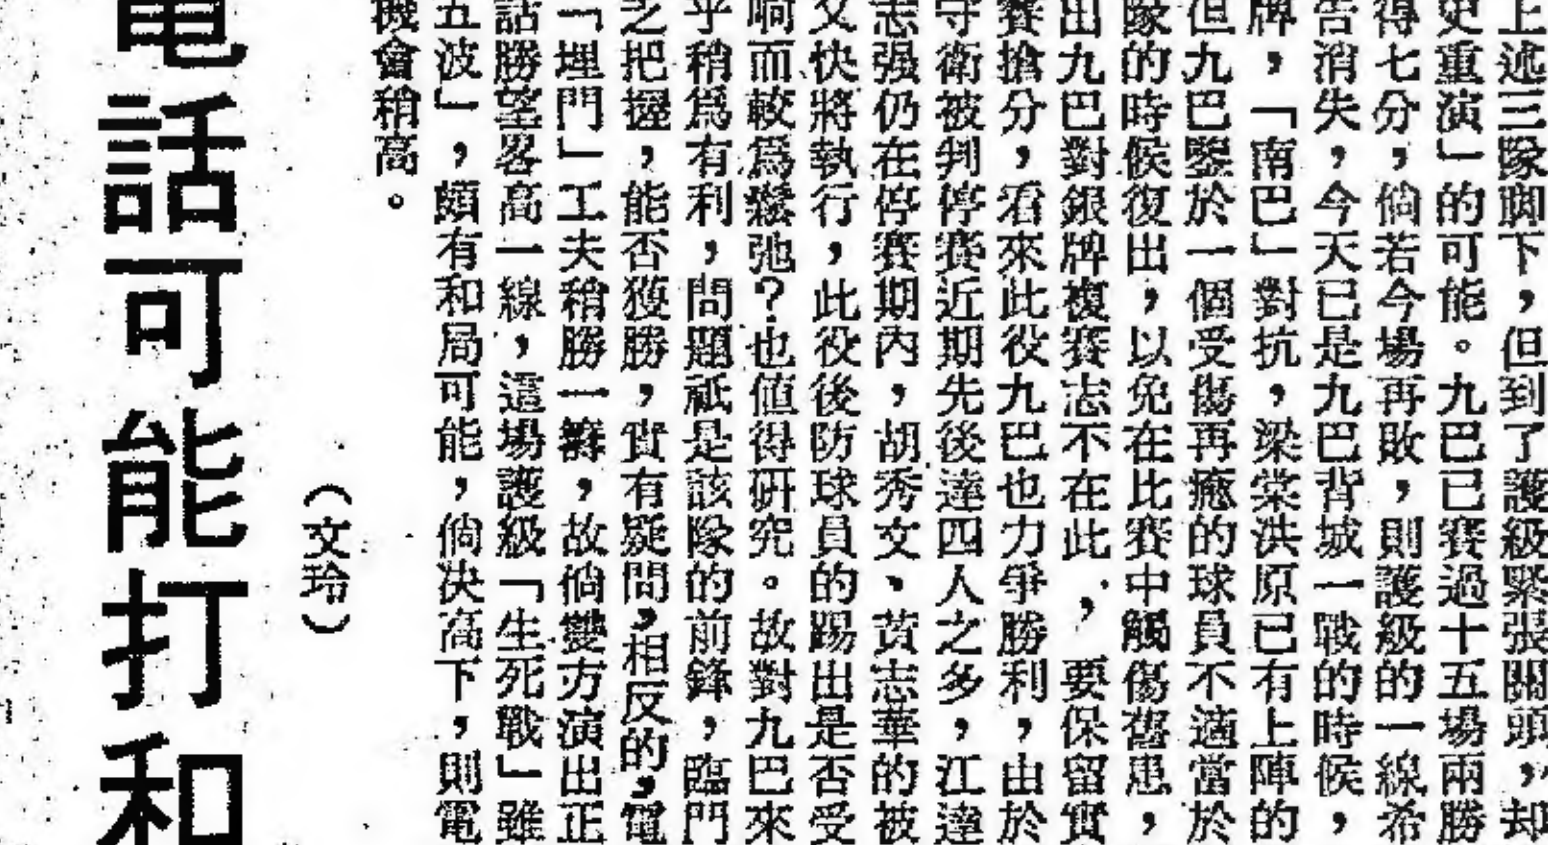 上述三隊脚下，但到了護級緊張關頭，却
史重演」的可能。九巴已賽過十五場兩勝
得七分，倘若今場再敗，則護級的一線希
告消失，今天已是九巴背城一戰的時候，
牌，「南巴」對抗，梁棠洪原已有上陣的
但九巴鑒於一個受傷再癒的球員不適當於
隊的時候復出，以免在比賽中觸傷舊患，
出九巴對銀牌複賽志不在此，要保留實
賽搶分，看來此役九巴也力爭勝利，由於
守衛被判停賽近期先後達四人之多，江達
志强仍在停賽期內，胡秀文、黃志華的被
又快將執行，此役後防球員的踢出是否受
响而較爲鬆弛？也值得研究。故對九巴來
乎稍爲有利，問題祇是該隊的前鋒，臨門
之把握，能否獲勝，實有疑問，相反的，電
「埋門」工夫稍勝一籌，故倘雙方演出正
話勝望畧高一線，這場護級「生死戰」雖
五波」，頗有和局可能，倘決高下，則電
機會稍高。
（文玲）
電話可能打和